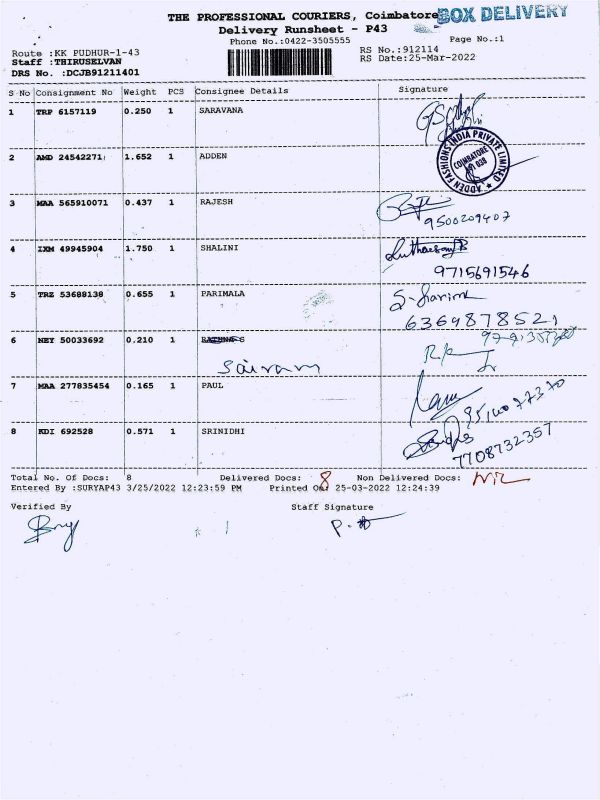 THE PROFESSIONAL COURIERS, Coimbatore BOX DELIVERY
Delivery Runsheet - P43
Phone No.:0422-3505555 Page No.:1
Route :KK PUDHUR-1-43 RS No.:912114
Staff :THIRUSELVAN RS Date:25-Mar-2022
DRS No. :DCJB91211401
S No Consignment No Weight PCS Consignee Details Signature
1 TRP 6157119 0.250 1 SARAVANA
2 AMD 24542271 1.652 1 ADDEN
ADDEN FASHIONS INDIA PRIVATE LIMITED
COIMBATORE
3 MAA 565910071 0.437 1 RAJESH
9500209407
4 IXM 49945904 1.750 1 SHALINI
9715691546
5 TRZ 53688138 0.655 1 PARIMALA
6369878521
6 NEY 50033692 0.210 1
Sairam
7 MAA 277835454 0.165 1 PAUL
8 KDI 692528 0.571 1 SRINIDHI
7708732357
Total No. Of Docs: 8 Delivered Docs: 8 Non Delivered Docs: Nil
Entered By :SURYAP43 3/25/2022 12:23:59 PM Printed On: 25-03-2022 12:24:39
Verified By Staff Signature